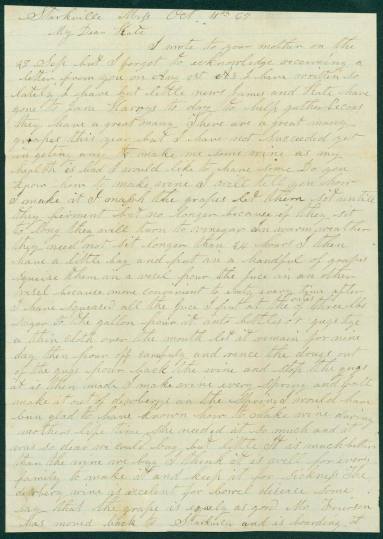 Starkville Miss Oct 4th 67
My Dear Kate
I wrote to your mother on the
28 Sep but I forgot to acknoledge receiveing a
letter from you on Aug 1st As I have written so
lately I have but little news James and Kate have
gone to Jane to day to help gather
they have a great many There are a great many
grapes this year but I have not succeeded yet
in geting any to make me some wine as my
health is bad I would like to have some Do you
know how to make wine I will tell you how
I make it I mash the grapes let them set untill
they firment but no longer because if they set
to long they will turn to vinegar In warm weather
they need not set longer than 24 hours I then
have a little bag and put in a handful of grapes
squeeze them in a vesel pour the juce in an other
vesel because more convenient to do every time after
I have squeezed all the juce I put at the of three lbs
sugar to the gallon pour it into bottles or jugs tye
a thin cloth over the mouth let it remain for nine
day then pour off carefuly and rance the dregs out
of the jugs pour back the wine and stop the jugs
it is then made I make wine every spring and fall
make it out of dewberys in the spring I would have
bin glad to have known how to make wine during
mothers life time she needed it so much and it
was so dear we could buy but little It is much better
than the wine we buy I think it is well for every
family to make it and keep it for sickness The
dewbery wine is excelent for bowel disease some
say that the grape is equely as good Mr
has moved back to Starkville and is boarding at